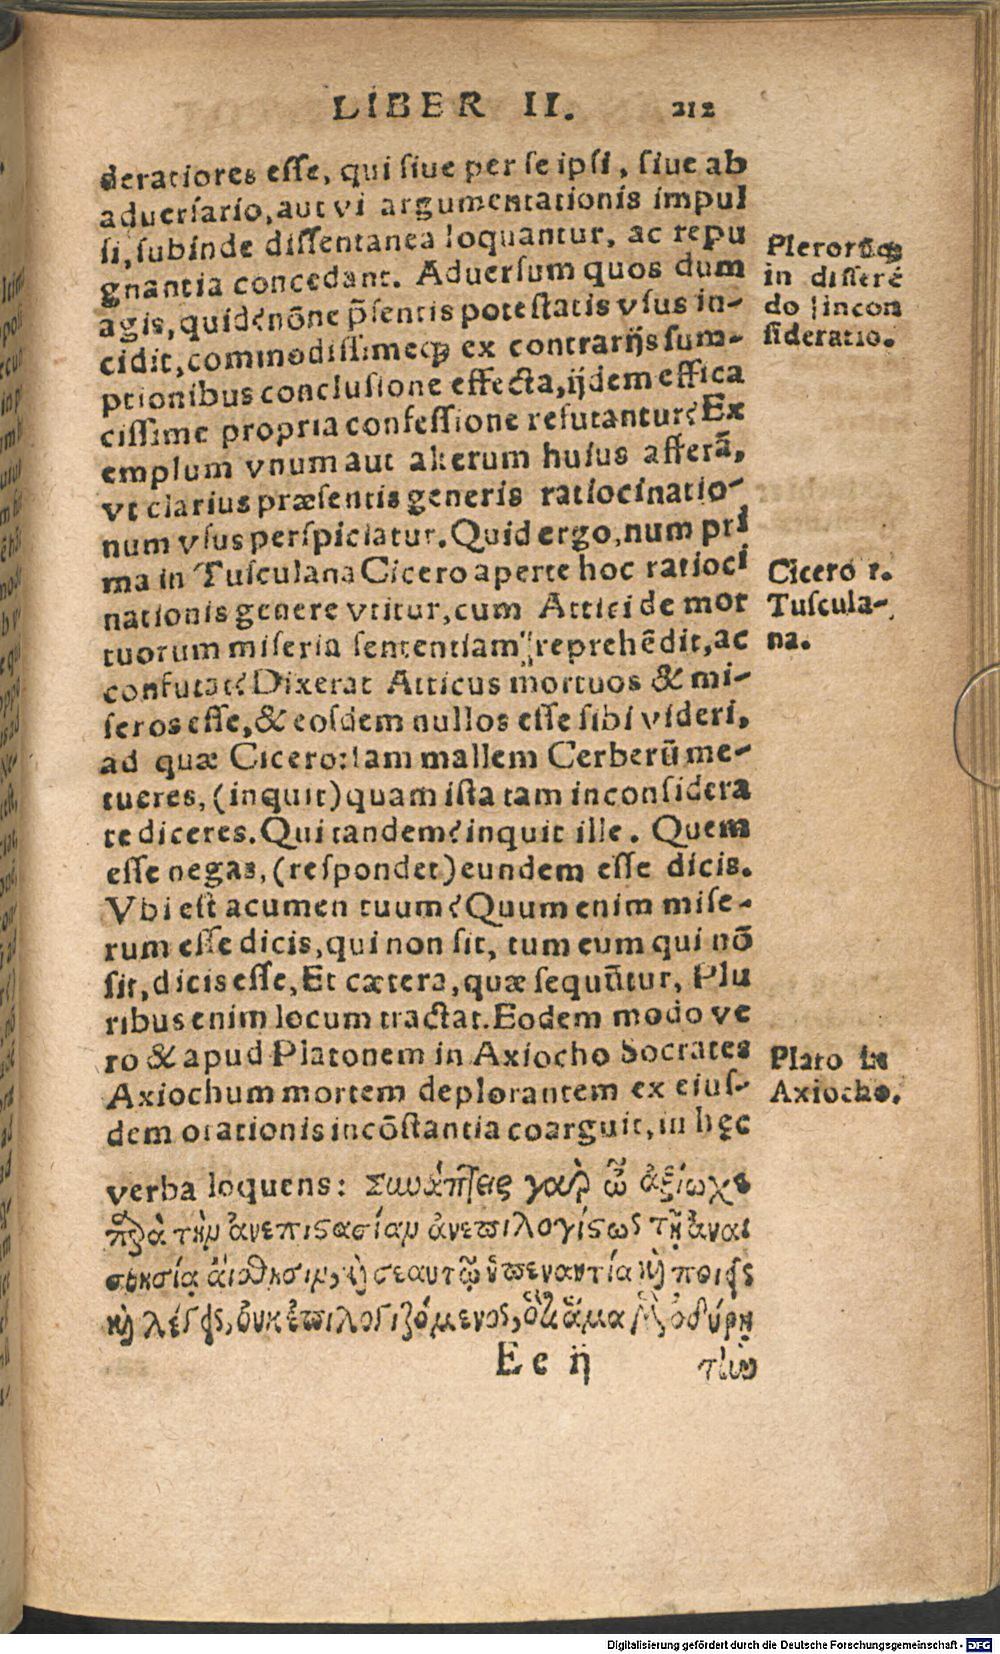 LIBER II. 212
deratiores esse, qui siue per se ipsi, siue ab
aduersario, aut vi argumentationis impul
si, subinde dissentanea loquantur, ac repu
gnantia concedant. Aduersum quos dum
agis, quid? nōne p̄sentis potestatis vsus in-
cidit, commodissimeq́ ex contrarijs sum-
ptionibus conclusione effecta, ijdem effica
cissime propria confessione refutantur? Ex
emplum vnum aut alterum huius afferā,
vt clarius præsentis generis ratiocinatio-
num vsus perspiciatur. Quid ergo, num pri
ma in Tusculana Cicero aperte hoc ratioci
nationis genere vtitur, cum Attici de mor
tuorum miseria sententiam reprehēdit, ac
confutat? Dixerat Atticus mortuos & mi-
seros esse, & eosdem nullos esse sibi videri,
ad quæ Cicero: Iam mallem Cerberū me-
tueres, (inquit) quam ista tam inconsidera
te diceres. Qui tandem? inquit ille. Quem
esse negas, (respondet) eundem esse dicis.
Vbi est acumen tuum? Quum enim mise-
rum esse dicis, qui non sit, tum eum qui nō
sit, dicis esse, Et cætera, quæ sequūtur, Plu
ribus enim locum tractat. Eodem modo ve
ro & apud Platonem in Axiocho Socrates
Axiochum mortem deplorantem ex eius-
dem orationis incōstantia coarguit, in hęc
verba loquens: Συνάπτεις γὰρ ὦ ἀξίοχε
παρὰ τὴν ἀνεπιστασίαν ἀνεπιλογίστως τῇ ἀναι
σθησίᾳ αἴσθησιν, καὶ σεαυτῷ ὑπεναντία καὶ ποιεῖς
καὶ λέγεις, οὐκ ἐπιλογιζόμενος, ὅτι ἅμα μὲν ὀδύρῃ
Ee ij την
Plerorūq́
in disserē
do incon
sideratio.
Cicero 1.
Tuscula-
na.
Plato in
Axiocho.
Digitalisierung gefördert durch die Deutsche Forschungsgemeinschaft - DFG